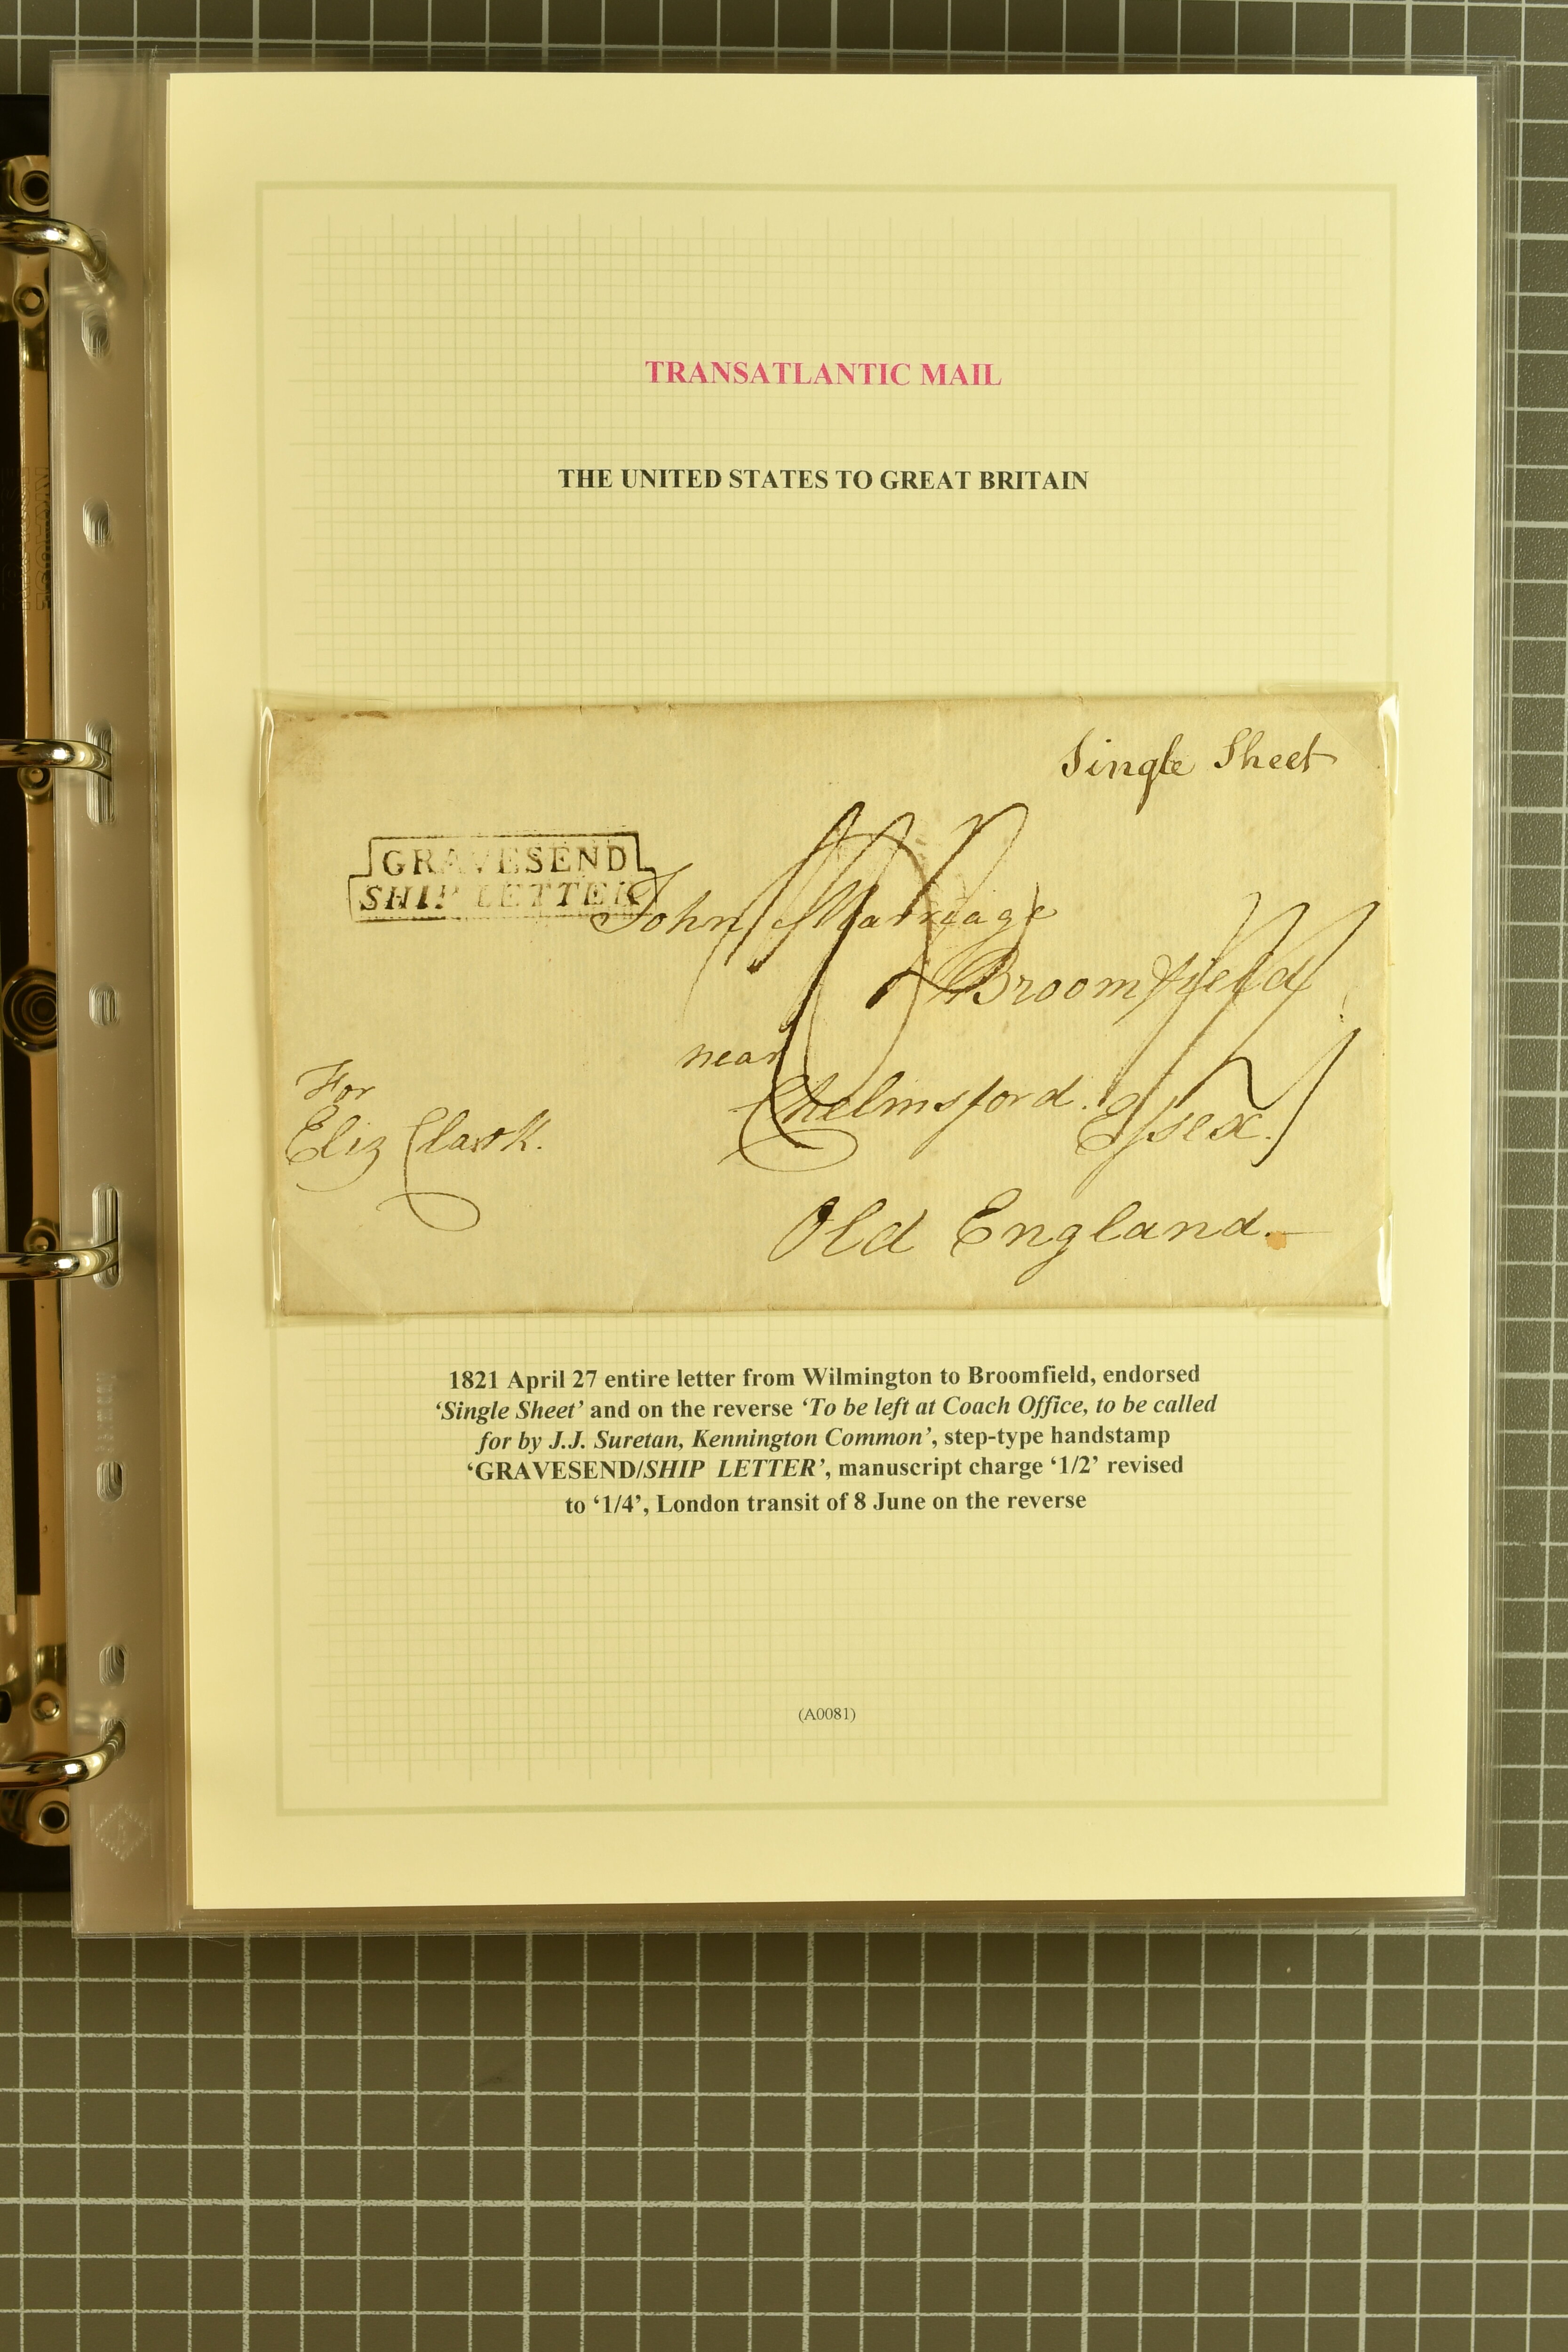 TRANSATLANTIC MAIL
THE UNITED STATES TO GREAT BRITAIN
Single Sheet
GRAVESEND
SHIP LETTER
John Marriage
Broomfield
near
Chelmsford. Essex.
For
Eliz Clark.
Old England.
1821 April 27 entire letter from Wilmington to Broomfield, endorsed
‘Single Sheet’ and on the reverse ‘To be left at Coach Office, to be called
for by J.J. Suretan, Kennington Common’, step-type handstamp
‘GRAVESEND/SHIP LETTER’, manuscript charge ‘1/2’ revised
to ‘1/4’, London transit of 8 June on the reverse
(A0081)